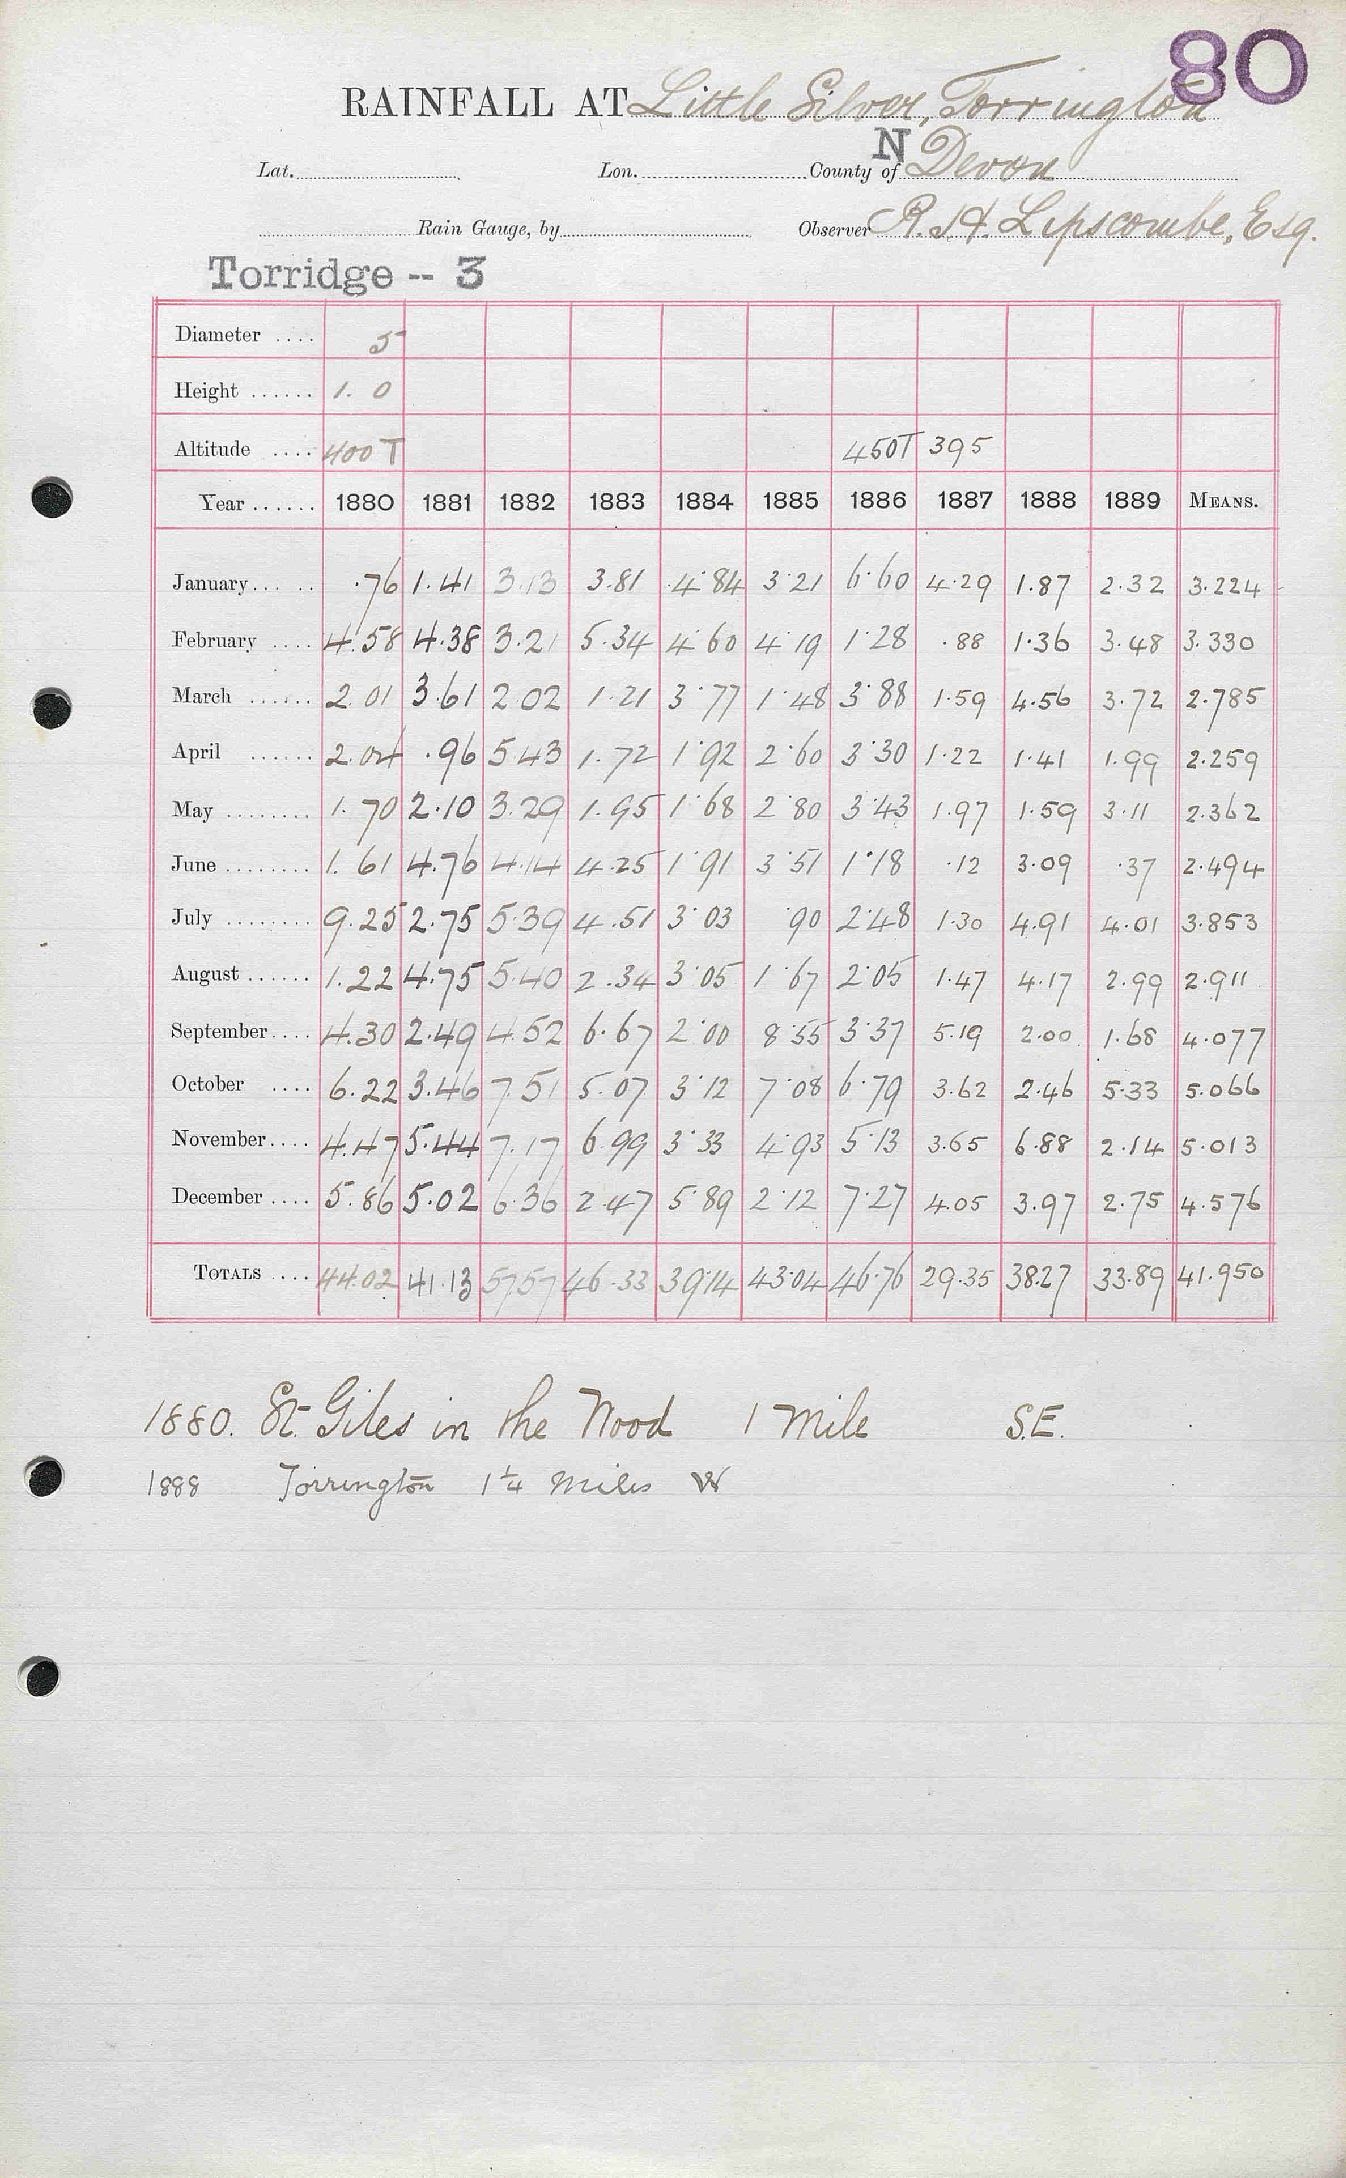 80
RAINFALL AT Little Silver, Torrington
Lat. Lon. County of N Devon
Rain Gauge, by Observer R. H. Lipscombe, Esq.
Torridge -- 3
Diameter .... 5
Height ...... 1. 0
Altitude .... 400 T 450T 395
Year ...... 1880 1881 1882 1883 1884 1885 1886 1887 1888 1889 MEANS.
January... .. .76 1.41 3.13 3.81 4.84 3.21 6.60 4.29 1.87 2.32 3.224
February .... 4.58 4.38 3.21 5.34 4.60 4.19 1.28 .88 1.36 3.48 3.330
March ...... 2.01 3.61 2.02 1.21 3.77 1.48 3.88 1.59 4.56 3.72 2.785
April ...... 2.04 .96 5.43 1.72 1.92 2.60 3.30 1.22 1.41 1.99 2.259
May ........ 1.70 2.10 3.29 1.95 1.68 2.80 3.43 1.97 1.59 3.11 2.362
June ........ 1.61 4.76 4.14 4.25 1.91 3.51 1.18 .12 3.09 .37 2.494
July ........ 9.25 2.75 5.39 4.51 3.03 .90 2.48 1.30 4.91 4.01 3.853
August ...... 1.22 4.75 5.40 2.34 3.05 1.67 2.05 1.47 4.17 2.99 2.911
September.... 4.30 2.49 4.52 6.67 2.00 8.55 3.37 5.19 2.00 1.68 4.077
October .... 6.22 3.46 7.51 5.07 3.12 7.08 6.79 3.62 2.46 5.33 5.066
November.... 4.47 5.44 7.17 6.99 3.33 4.93 5.13 3.65 6.88 2.14 5.013
December .... 5.86 5.02 6.36 2.47 5.89 2.12 7.27 4.05 3.97 2.75 4.576
TOTALS .... 44.02 41.13 57.57 46.33 39.14 43.04 46.76 29.35 38.27 33.89 41.950
1880. St. Giles in the Wood 1 Mile S.E.
1888 Torrington 1¼ miles W